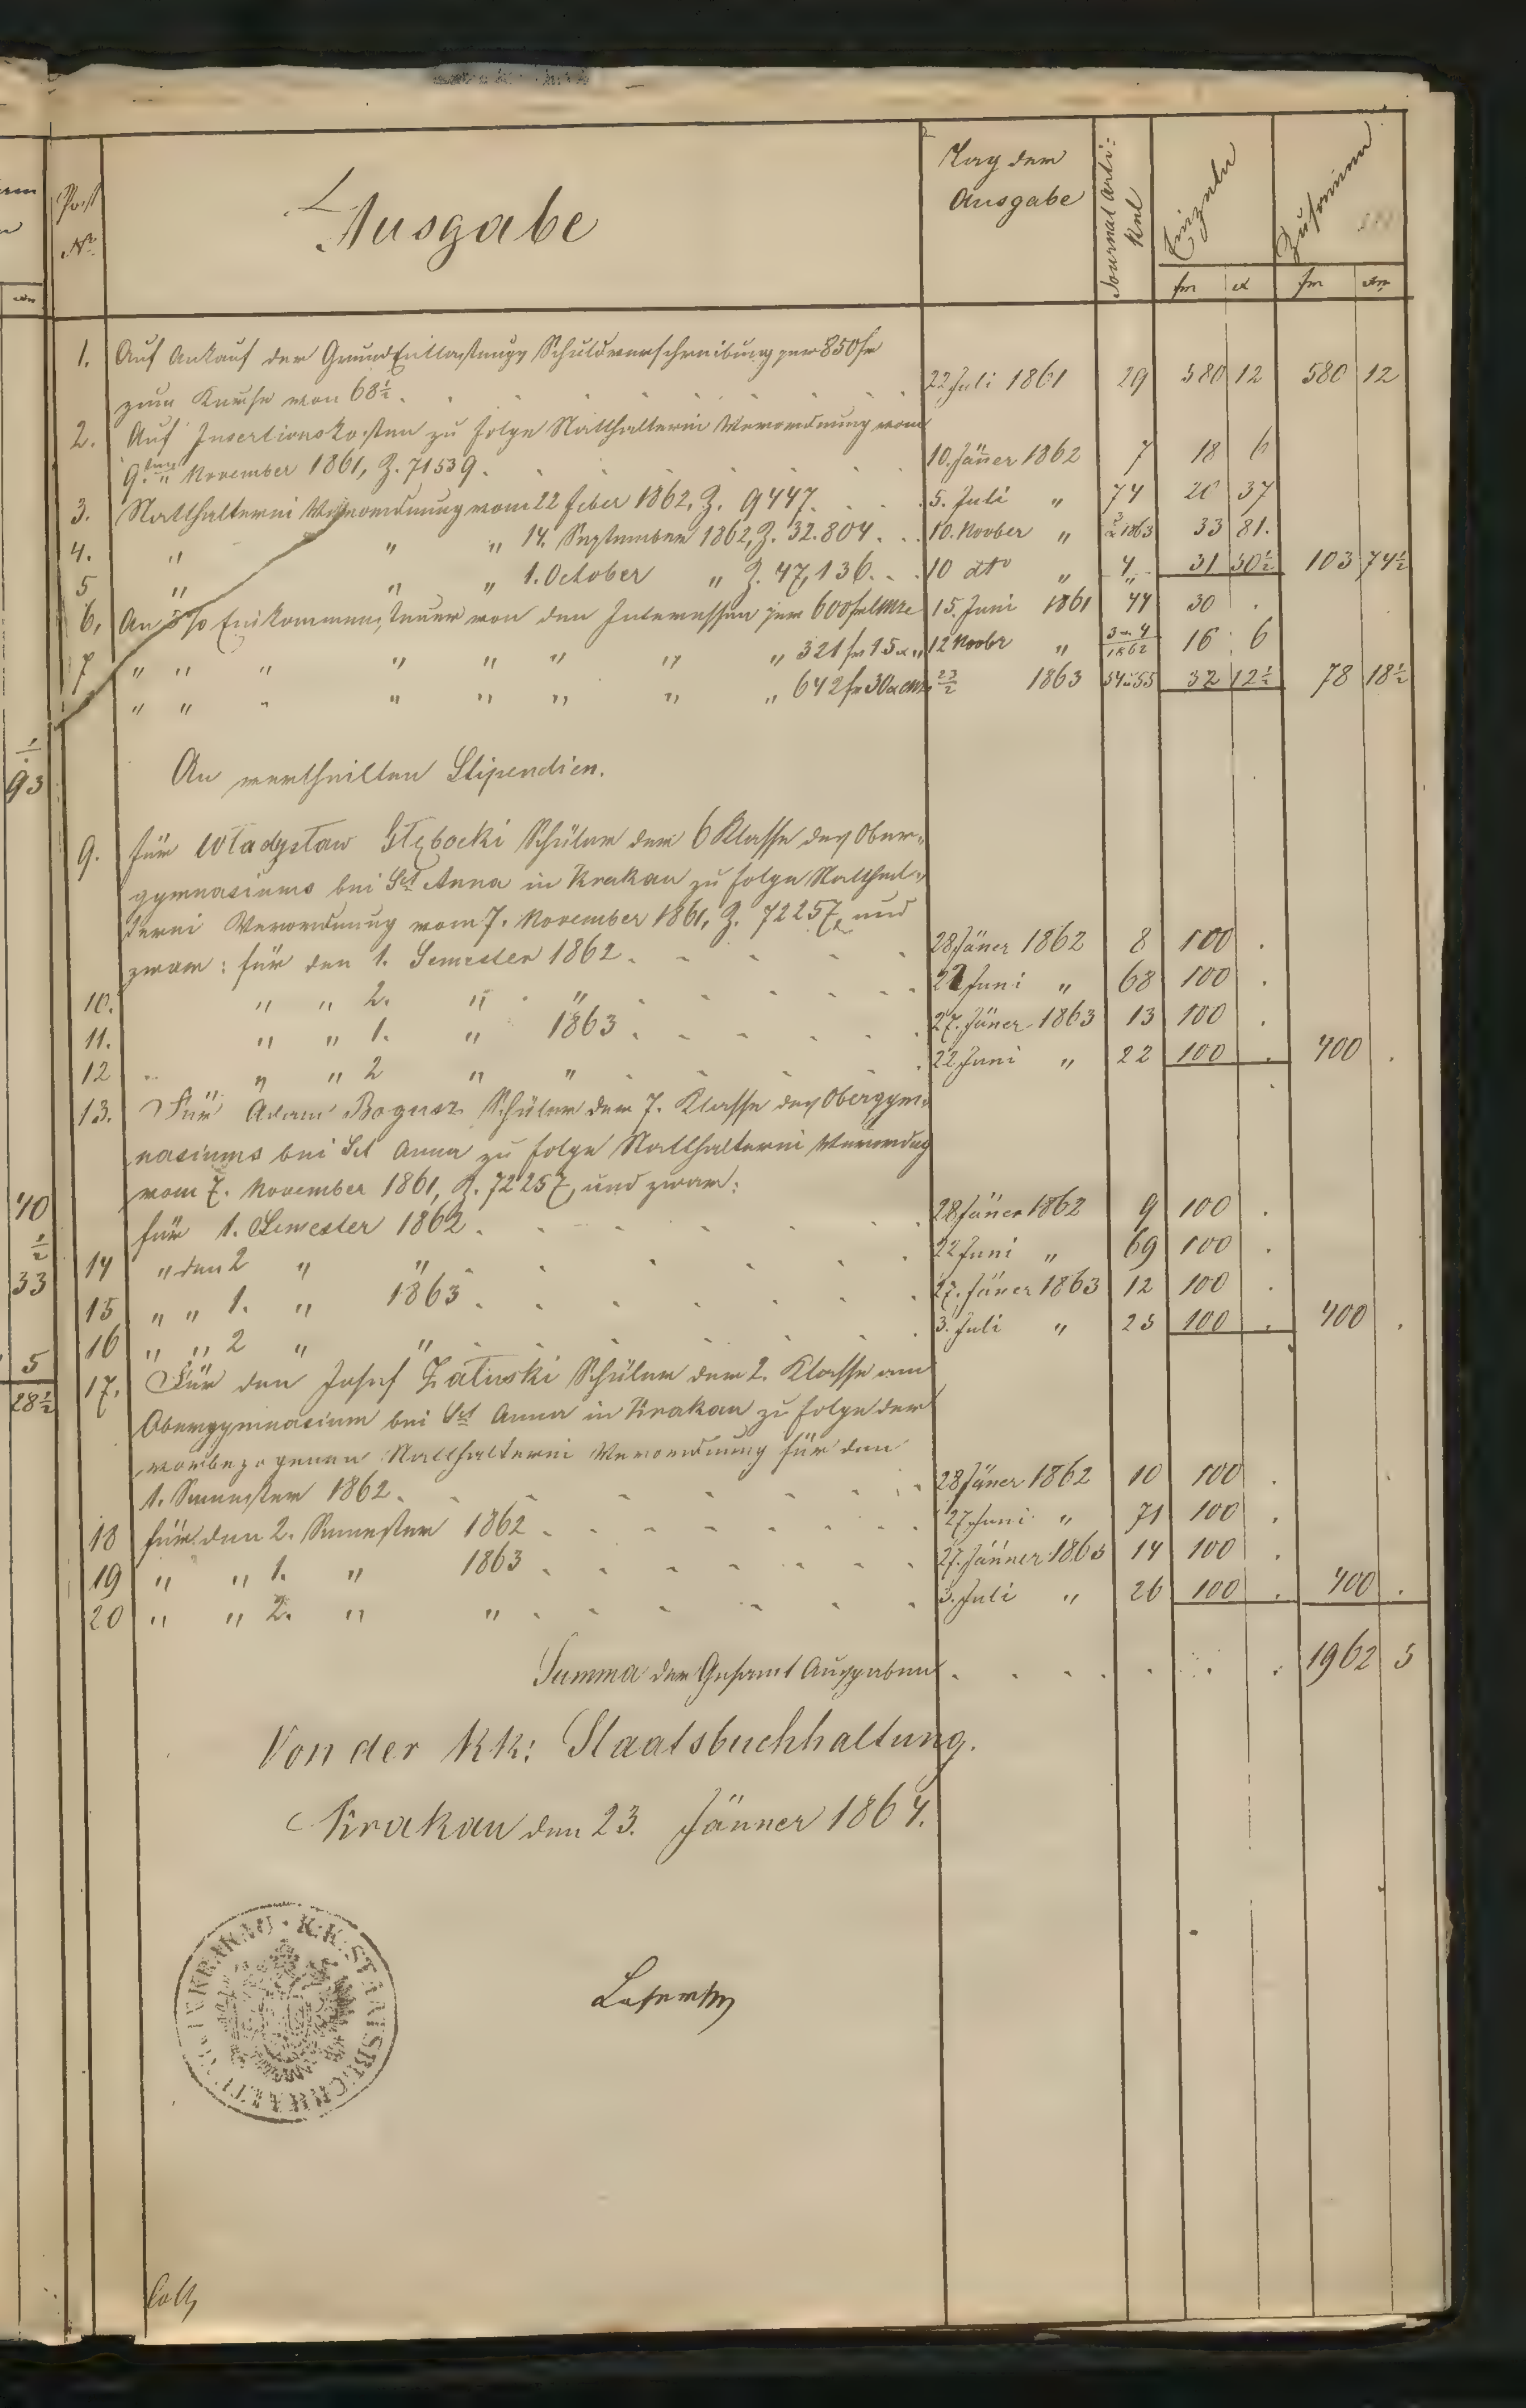 Post
Nr.
Ausgabe
Tag der
Ausgabe
Journal Arti-
kel
Einzeln
Zusammen
fr x fr xr
1. Auf Ankauf der GrundEntlastungs Schuldverschreibung per 850 fr
zum Kurse von 68½. 22 Juli 1861 29 580 12 580 12
2. Auf Insertionskosten zu folge Statthalterei Verordnung vom
9. November 1861, Z. 71539. 10. Jäner 1862 7 18 6
3. Statthalterei Verordnung vom 22 feber 1862, Z. 9447. 5. Juli " 74 20 37
4. " " " 14. September 1862, Z. 32.804. 10. Novber " 3/1863 33 81.
5 " " " 1. October " Z. 47,136. 10 dto " 4 31 50½ 103 74½
6, An 5% Einkommensteuer von den Interessen per 600 fr CMze 15. Juni 1861 44 30 .
7 " " " " " " " " 321 fr 15 x " 12 Novbr " 3 u 4/1862 16 6
" " " " " " " " 642 fr 30 x CMz 23/2 1863 54 u 55 32 12½ 78 18½
An vertheilten Stipendien.
9. für Władysław Głębocki Schüler der 6 Klasse des Ober-
gymnasiums bei Sct Anna in Krakau zu folge Statthal-
terei Verordnung vom 7. November 1861, Z. 72257, und
zwar: für den 1. Semester 1862. 28 Jäner 1862 8 100 .
10. " " 2. " " 22 Juni " 68 100 .
11. " " 1. " 1863. 27. Jäner 1863 13 100 .
12 " " 2 " " 22 Juni " 22 100 . 400 .
13. Für Adam Bogusz Schüler der 7. Klasse des Obergym-
nasiums bei Sct Anna zu folge Statthalterei Verordng
vom 7. November 1861, Z. 72257, und zwar:
für 1. Semester 1862. 28 Jäner 1862 9 100 .
14 " den 2 " " 22 Juni " 69 100 .
15 " " 1. " 1863. 27. Jäner 1863 12 100 .
16 " " 2 " " 3. Juli " 25 100 . 400 .
17. Für den Josef Załuski Schüler der 2. Klasse am
Obergymnasium bei Sct Anna in Krakau zu folge der
vorbezogenen Statthalterei Verordnung für den
1. Semester 1862. 28 Jäner 1862 10 100 .
18 für den 2. Semester 1862. 27. Juni " 71 100 .
19 " " 1. " 1863. 27. Jänner 1863 14 100 .
20 " " 2. " " 3. Juli " 26 100 . 400 .
Summa der Gesamt Ausgaben 1962 5
Von der kk: Staatsbuchhaltung.
Krakau den 23. Jänner 1864.
K.K. STAATSBUCHHALTUNG KRAKAU
93
40
½
33
5
28½